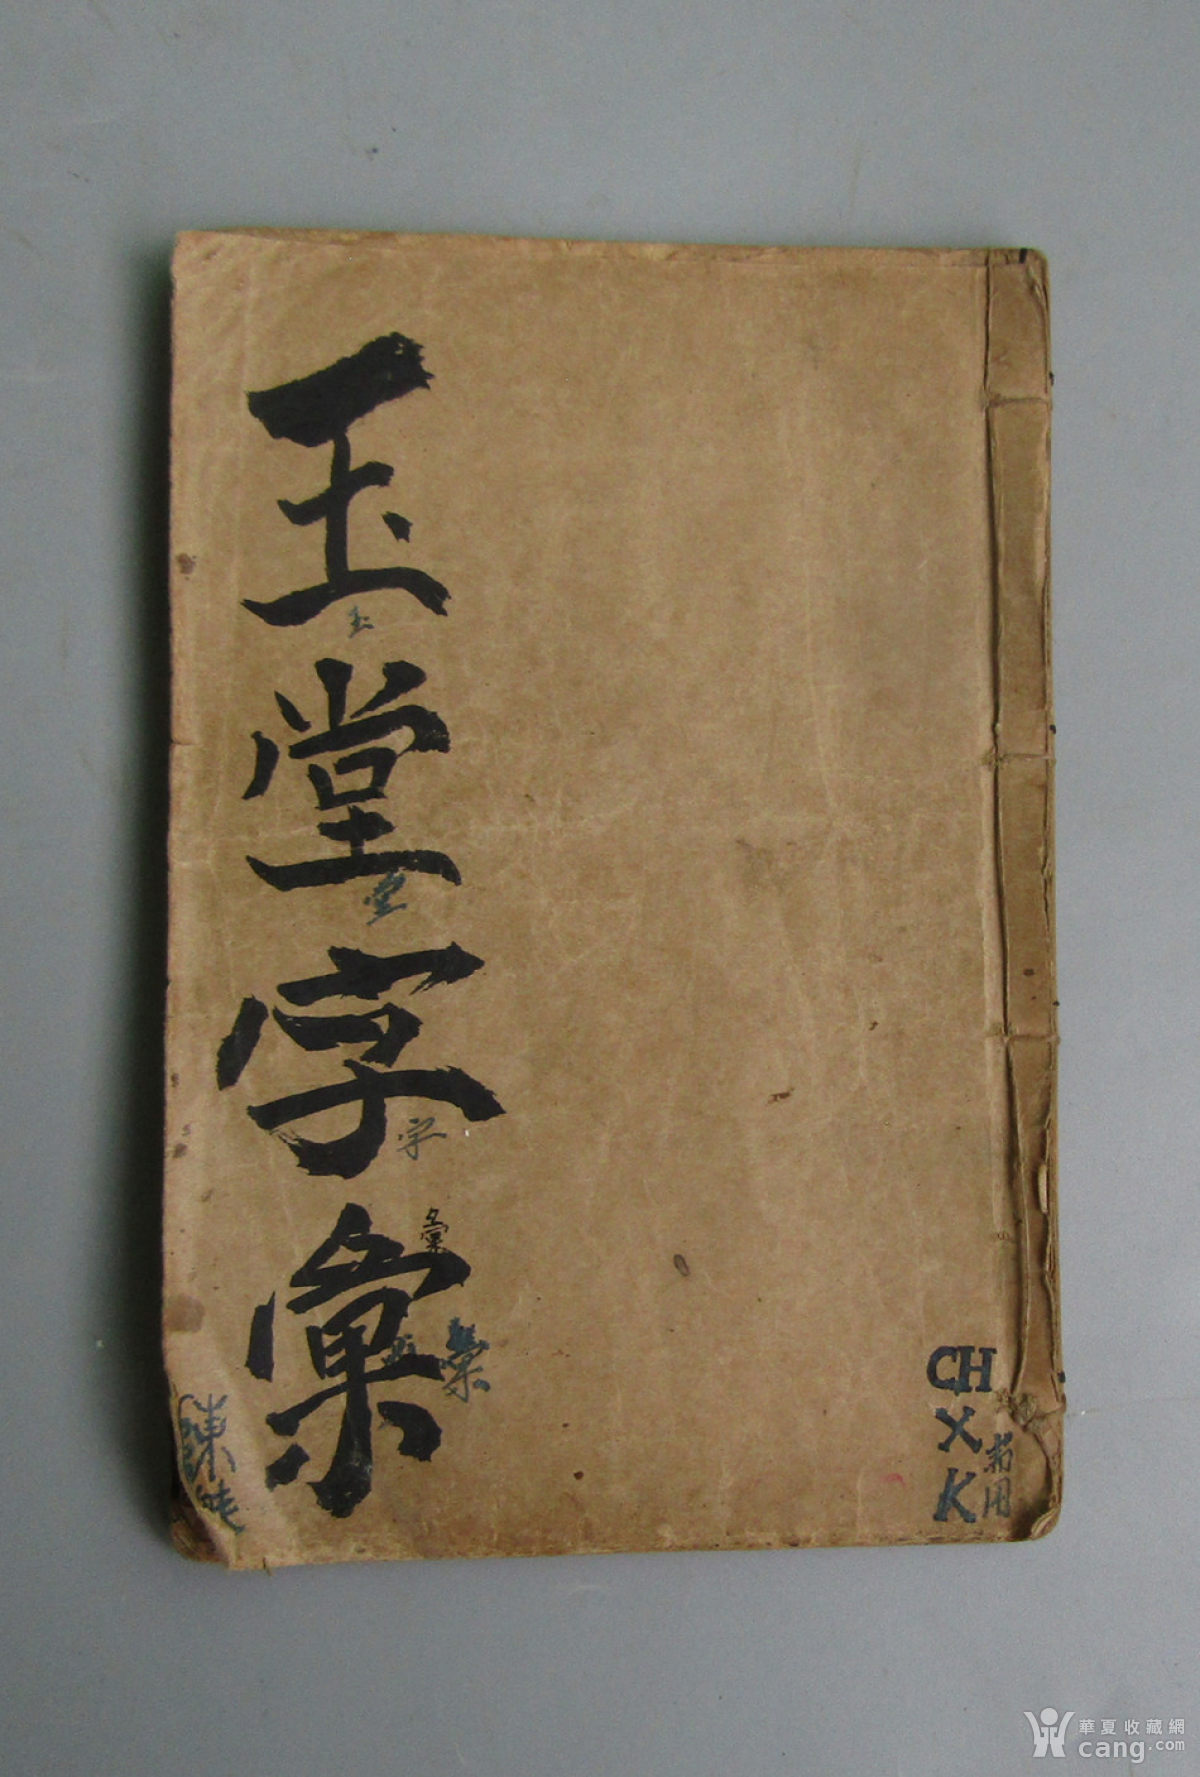 玉堂字彙
玉
堂
字
彙
彙
陳
CH
X
K
用
華夏收藏網
cang.com